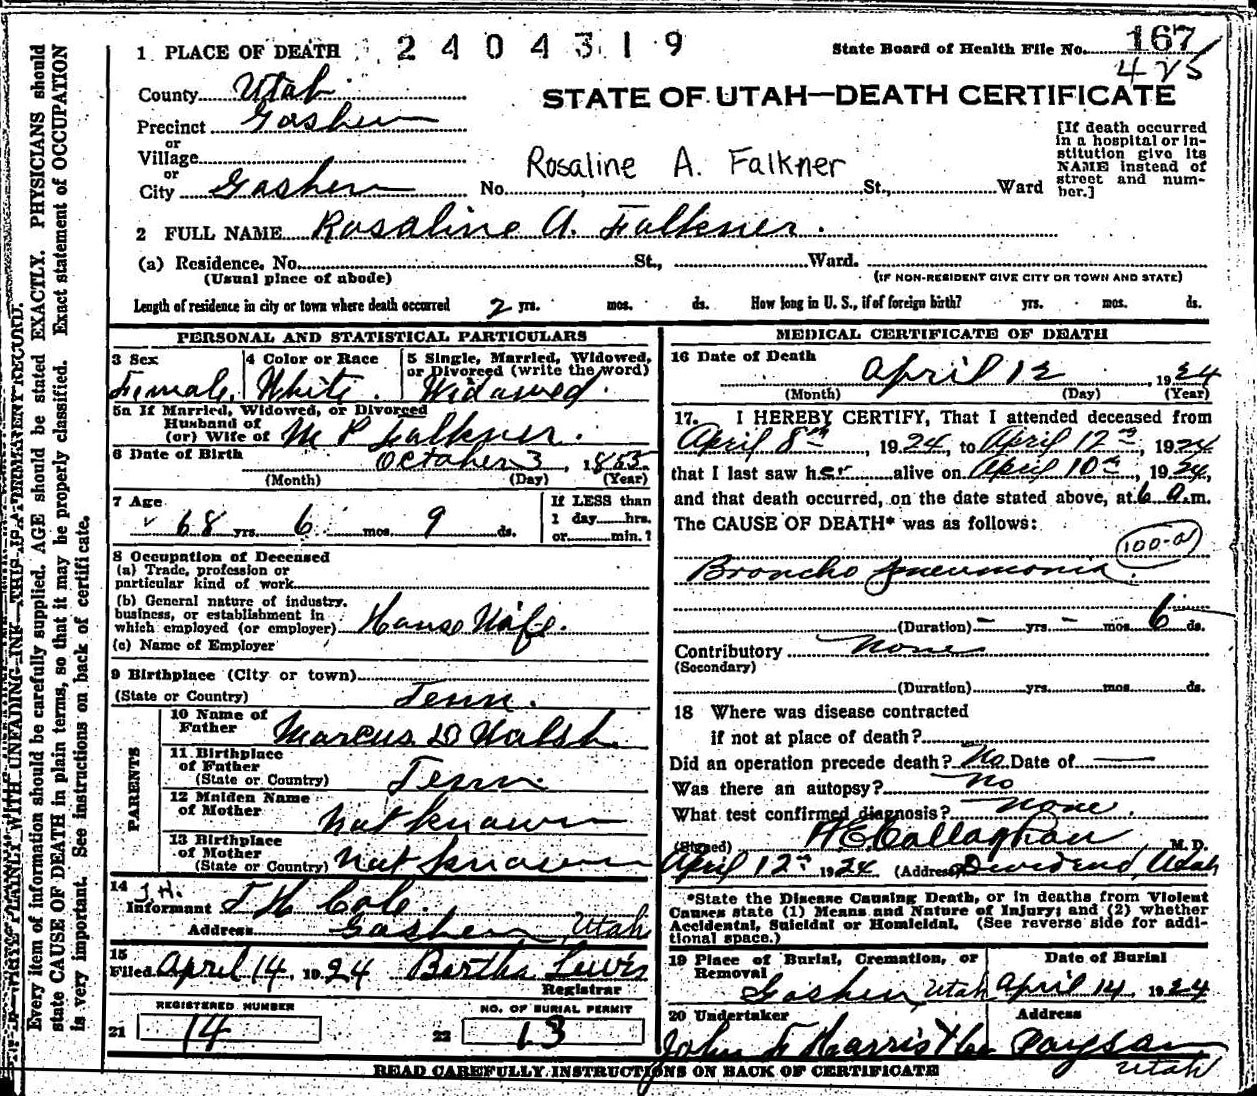 1 PLACE OF DEATH 2404319 State Board of Health File No. 167
425
County Utah
STATE OF UTAH—DEATH CERTIFICATE
Precinct Goshen
or
Village
or
City Goshen No. St., Ward
Rosaline A. Falkner
[If death occurred
in a hospital or in-
stitution give its
NAME instead of
street and num-
ber.]
2 FULL NAME Rosaline A. Falkner.
(a) Residence. No. St., Ward.
(Usual place of abode) (IF NON-RESIDENT GIVE CITY OR TOWN AND STATE)
Length of residence in city or town where death occurred 2 yrs. mos. ds. How long in U. S., if of foreign birth? yrs. mos. ds.
PERSONAL AND STATISTICAL PARTICULARS
3 Sex
Female
4 Color or Race
White
5 Single, Married, Widowed,
or Divorced (write the word)
Widowed.
5a If Married, Widowed, or Divorced
Husband of
(or) Wife of M P Falkner.
6 Date of Birth October 3, 1855
(Month) (Day) (Year)
7 Age
68 yrs. 6 mos. 9 ds.
If LESS than
1 day hrs.
or min.?
8 Occupation of Deceased
(a) Trade, profession or
particular kind of work
(b) General nature of industry.
business, or establishment in
which employed (or employer) House Wife.
(c) Name of Employer
9 Birthplace (City or town)
(State or Country) Tenn.
PARENTS
10 Name of
Father Marcus D Walsh
11 Birthplace
of Father
(State or Country) Tenn.
12 Maiden Name
of Mother not known
13 Birthplace
of Mother
(State or Country) not known
14 J.H.
Informant J H Cole
Address Goshen, Utah
15
Filed April 14, 1924 Bertha Lewis
Registrar
REGISTERED NUMBER
21 14
NO. OF BURIAL PERMIT
22 13
MEDICAL CERTIFICATE OF DEATH
16 Date of Death
April 12, 1924
(Month) (Day) (Year)
17. I HEREBY CERTIFY, That I attended deceased from
April 8th, 1924, to April 12th, 1924
that I last saw her alive on April 10th, 1924,
and that death occurred, on the date stated above, at 6 a.m.
The CAUSE OF DEATH* was as follows:
100-a
Broncho pneumonia.
(Duration) - yrs. - mos. 6 ds.
Contributory none
(Secondary)
(Duration) yrs. mos. ds.
18 Where was disease contracted
if not at place of death?
Did an operation precede death? No Date of —
Was there an autopsy? no
What test confirmed diagnosis? none.
(Signed) H E Callaghan M. D.
April 12th 1924 (Address) Dividend, Utah
*State the Disease Causing Death, or in deaths from Violent
Causes state (1) Means and Nature of Injury; and (2) whether
Accidental, Suicidal or Homicidal. (See reverse side for addi-
tional space.)
19 Place of Burial, Cremation, or
Removal
Goshen, Utah
Date of Burial
April 14, 1924
20 Undertaker
John F Harris & Co
Address
Payson
Utah
READ CAREFULLY INSTRUCTIONS ON BACK OF CERTIFICATE
WRITE PLAINLY WITH UNFADING INK—THIS IS A PERMANENT RECORD.
Every item of information should be carefully supplied. AGE should be stated EXACTLY. PHYSICIANS should
state CAUSE OF DEATH in plain terms, so that it may be properly classified. Exact statement of OCCUPATION
is very important. See instructions on back of certificate.